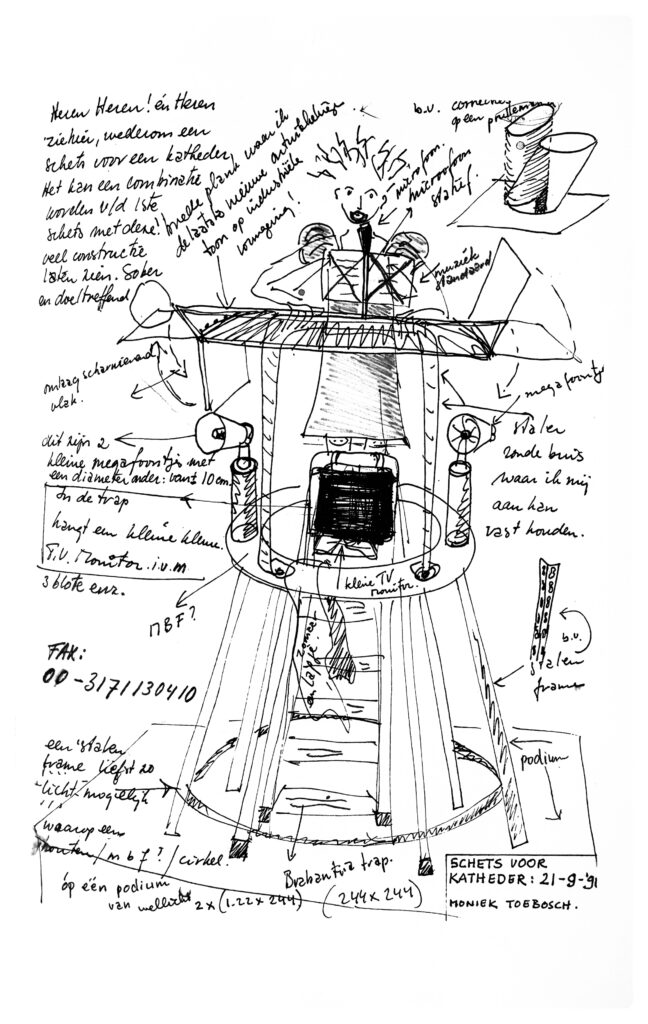 Heren Heren! én Heren
ziehier, wederom een
schets voor een katheder,
Het kan een combinatie
worden v/d 1ste
schets met deze!
veel constructie
laten zien. Sober
en doeltreffend
smalle plank waar ik
de laatste nieuwe
toon op industriële
vormgeving!
b.v. containers
op een
microfoon.
microofoon
statief.
muziek
standaard
omlaag scharnierend
vlak.
megafoontje
dit zijn 2
kleine megafoontjes met
een diameter onder: vant 10 cm.
In de trap
hangt een kleine kleine.
T.V. Monitor. i.v.m
3 blote enz.
stalen
ronde buis
waar ik mij
aan kan
vast houden.
kleine TV
monitor.
MBF?
zomaar
een lapje!
b.v.
stalen
frame
FAX:
00-3171130410
een stalen
frame liefst zo
licht mogelijk
waarop een
houten / m b f? / cirkel.
óp één podium
van wellicht 2x (1.22 x 244) (244 x 244)
podium
Brabantia trap.
SCHETS VOOR
KATHEDER: 21-9-'91
MONIEK TOEBOSCH.